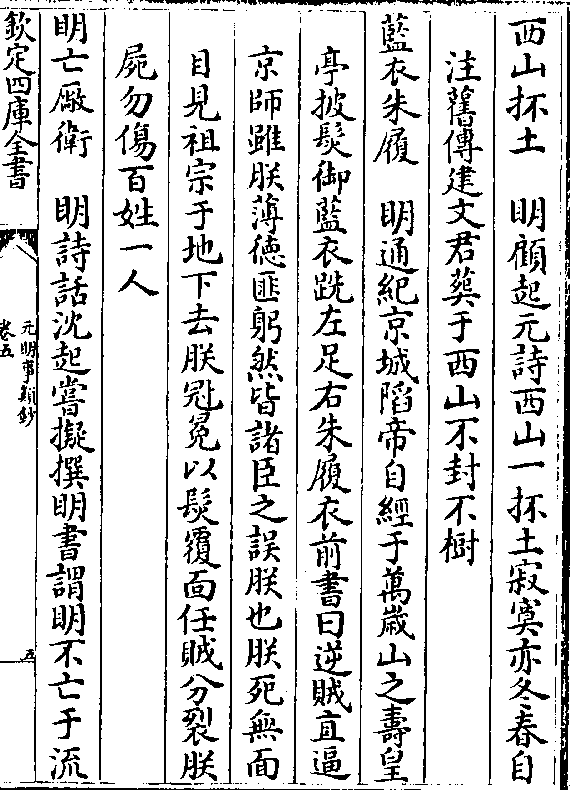 西山抔土　明顧起元詩西山一抔土寂寞亦冬春自
注舊傳建文君葬于西山不封不樹
藍衣朱履　明通紀京城陷帝自經于萬歲山之壽皇
亭披髮御藍衣跣左足右朱履衣前書曰逆賊直逼
京師雖朕薄德匪躬然皆諸臣之誤朕也朕死無面
目見祖宗于地下去朕冠冕以髮覆面任賊分裂朕
屍勿傷百姓一人
明亡廠衛　明詩話沈起嘗擬撰明書謂明不亡于流
欽定四庫全書
元明事類鈔
卷五
五